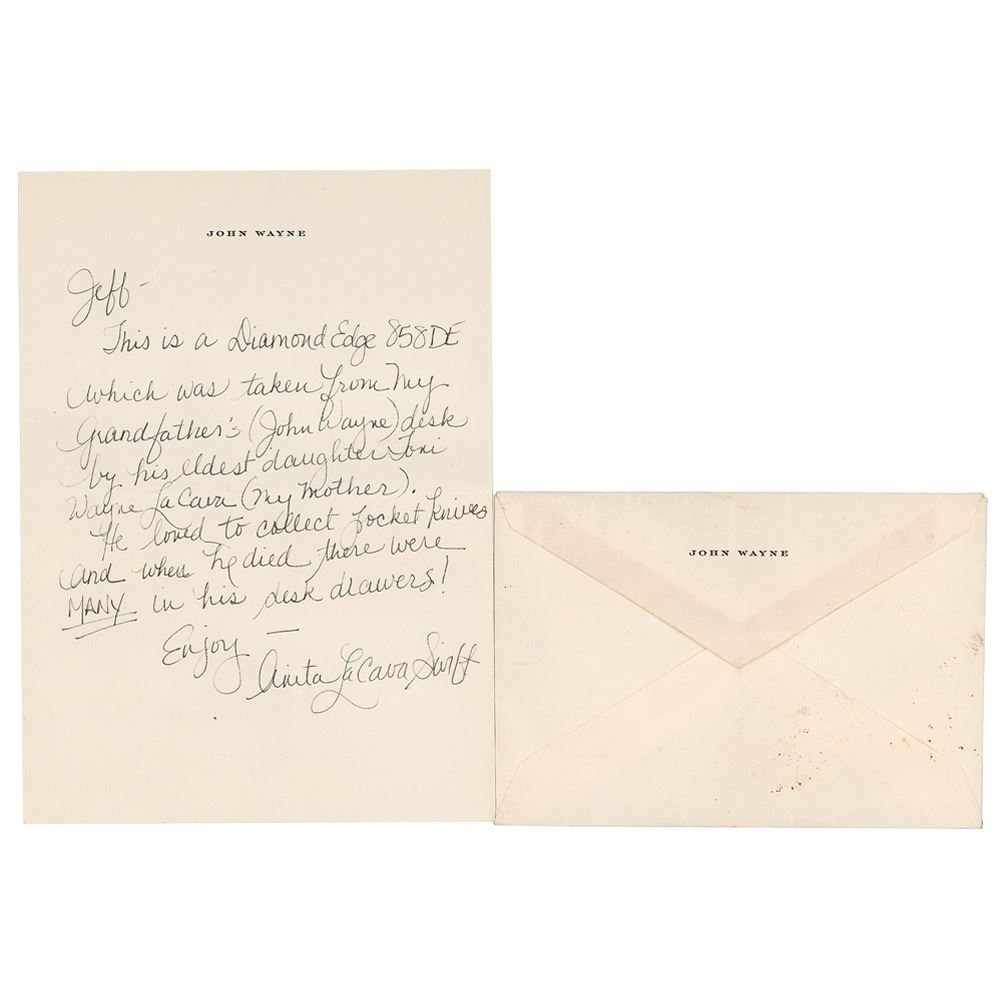 JOHN WAYNE
Jeff -
This is a Diamond Edge 858DE
which was taken from my
Grandfather's (John Wayne) desk
by his eldest daughter Toni
Wayne La Cava (my mother).
He loved to collect pocket knives
and when he died there were
MANY in his desk drawers!
Enjoy —
Anita La Cava Swift
JOHN WAYNE